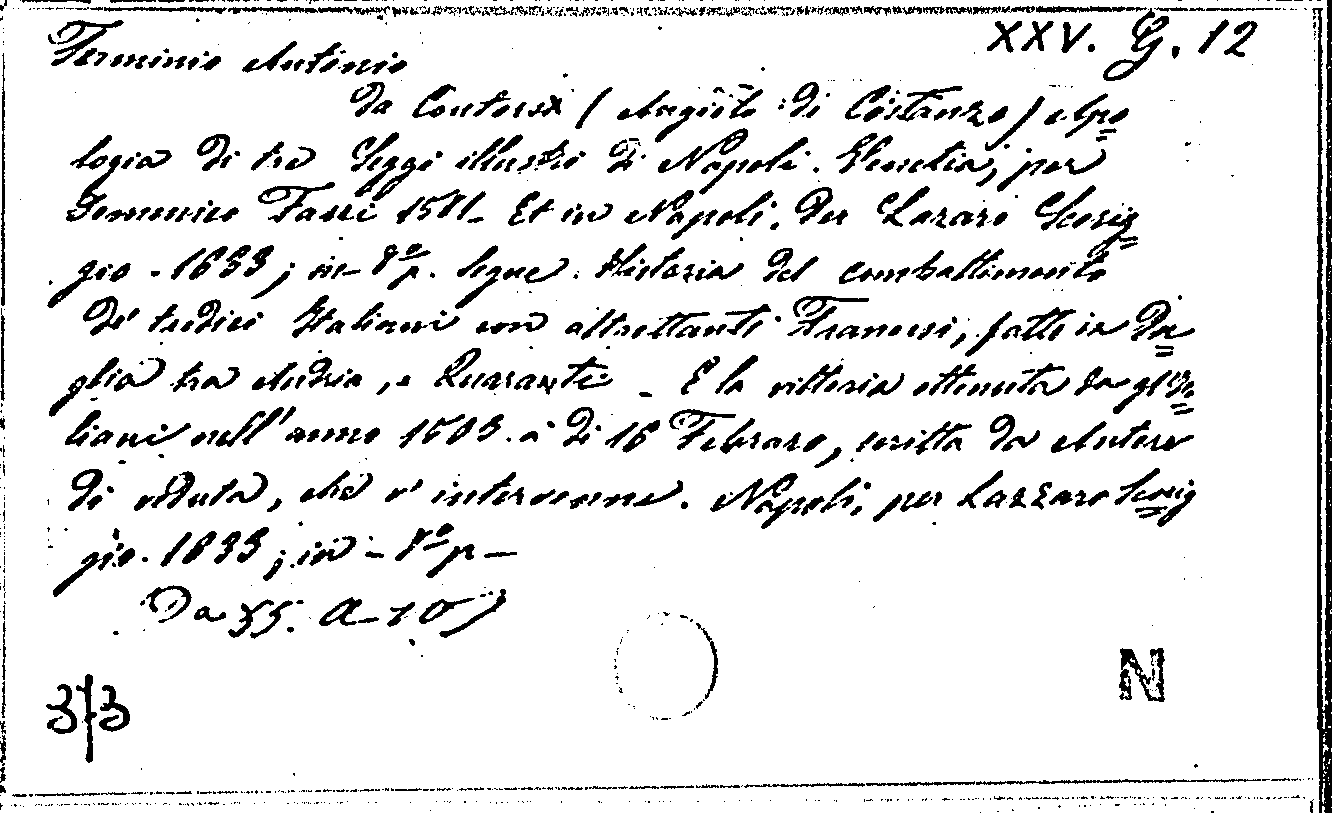 XXV. G. 12
Terminio Antonio
Da Contorsi (Angiolo di Costanzo) Apo=
logia di tre Seggi illustri di Napoli. Venetia, per
Domenico Farri 1581_ Et in Napoli. Per Lazaro Scorig=
gio - 1633; in- 8º p. Segue. Historia del combattimento
de' tredici Italiani con altrettanti Francesi, fatto in Pu=
glia tra Andria, e Quarati _ E la vittoria ottenuta da gl'Ita=
liani nell'anno 1503. a' di 16 Febraro, scritta da Autore
di veduta, che v' intervenne. Napoli, per Lazzaro Scorig=
gio. 1633; in - 8º p —
Da 35. A - 10
3/3
N